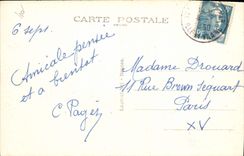 CARTE POSTALE
6 sept.
Amicale pensée
et à bientôt
C. Pagès
Madame Drouard
11 Rue Brown Séquart
Paris
XV